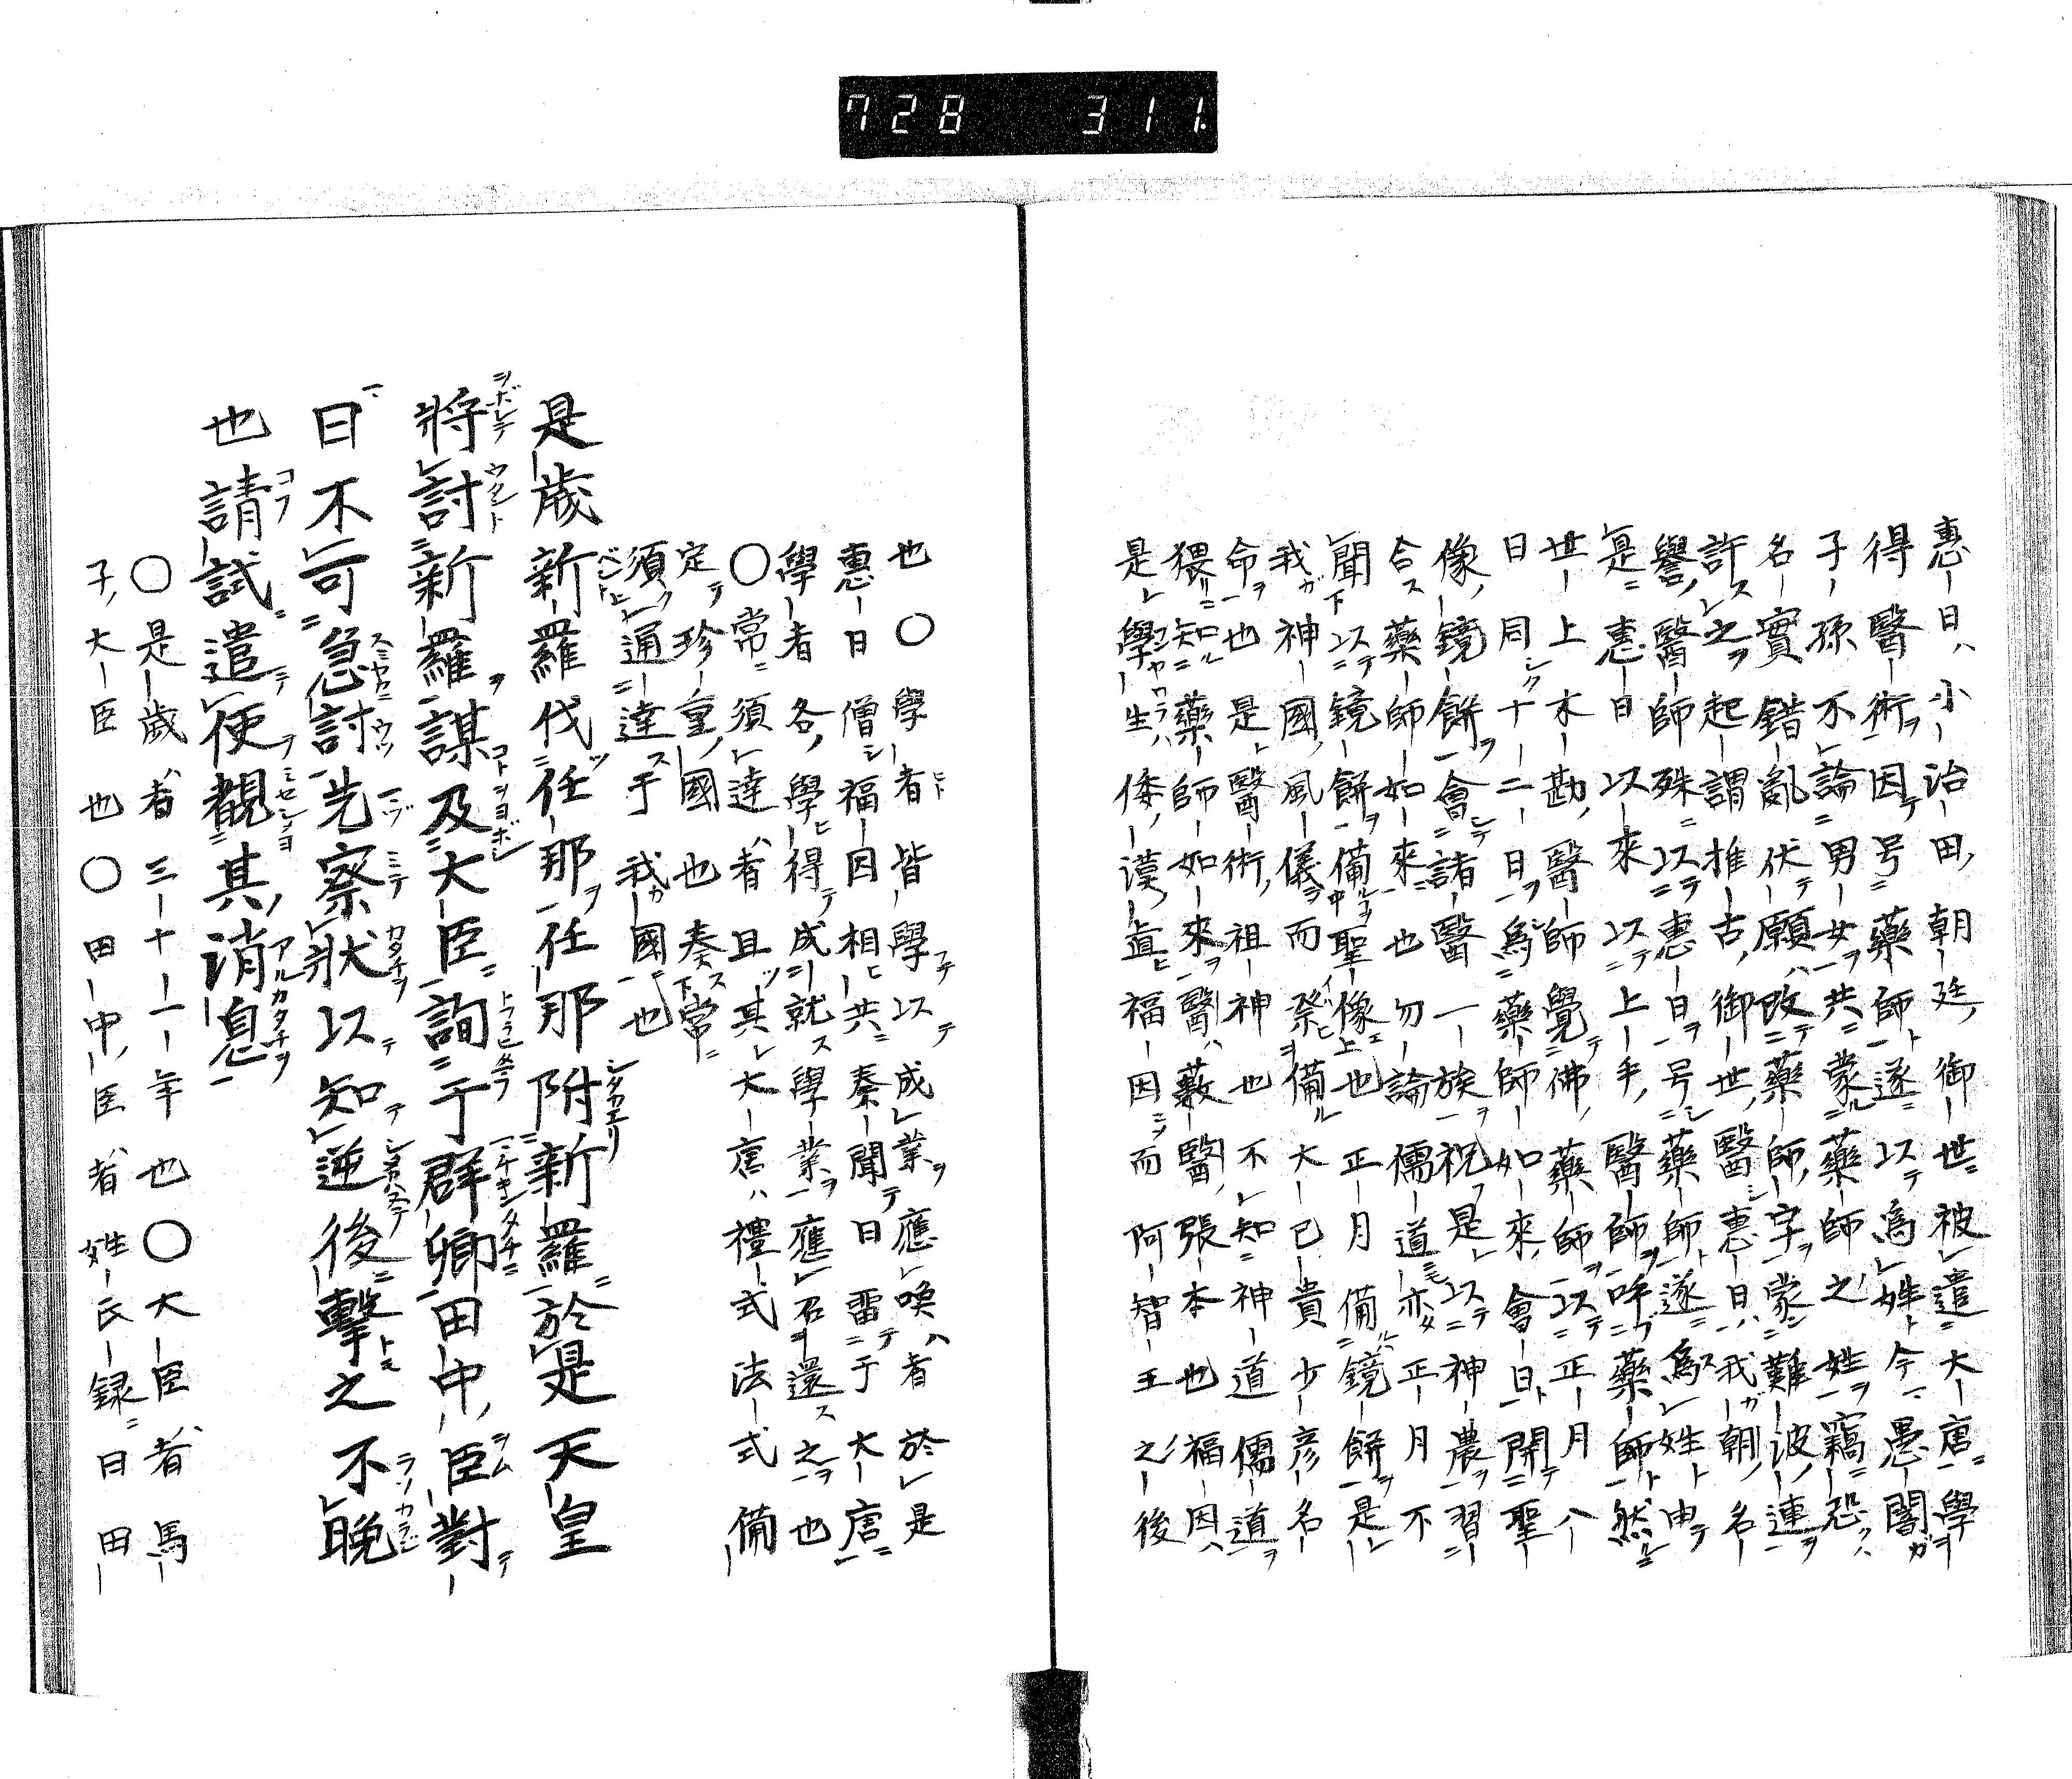 728 311
惠日小治田朝廷御世被遣大唐學
得醫術因号藥師遂以爲姓今愚闇
子孫不論男女共蒙藥師之姓竊恐
名實錯亂伏願改藥師字蒙難波連
許之起謂推古御世醫惠日我朝名
譽醫師殊以惠日号藥師遂爲姓申
是惠日以來以上手醫師呼藥師然
世上木勘醫師覺佛藥師以正月八
日同十二日爲藥師如來會日開聖
像鏡餅會諸醫一族祝是以神農習
合藥師如來也勿論儒道亦正月不
聞以鏡餅備聖像也正月備鏡餅是
我神國風儀而祭備大己貴少彦名
命也是醫術祖神也不知神道儒道
猥知藥師如來醫藪醫張本也福因
是學生倭漢直福因而阿智王之後
也〇學者皆學以成業應喚者於是
惠日僧福因相共奏聞曰留于大唐
學者各學得成就學業應召還之也
〇常須達者且其大唐禮式法式備
定珍重國也奏常
須通達于我國也
是歲新羅伐任那任那附新羅於是天皇
將討新羅謀及大臣詢于群卿田中臣對
曰不可急討先察狀以知逆後擊之不晩
也請試遣使覩其消息
〇是歲者三十一年也〇大臣者馬
子大臣也〇田中臣者姓氏録曰田